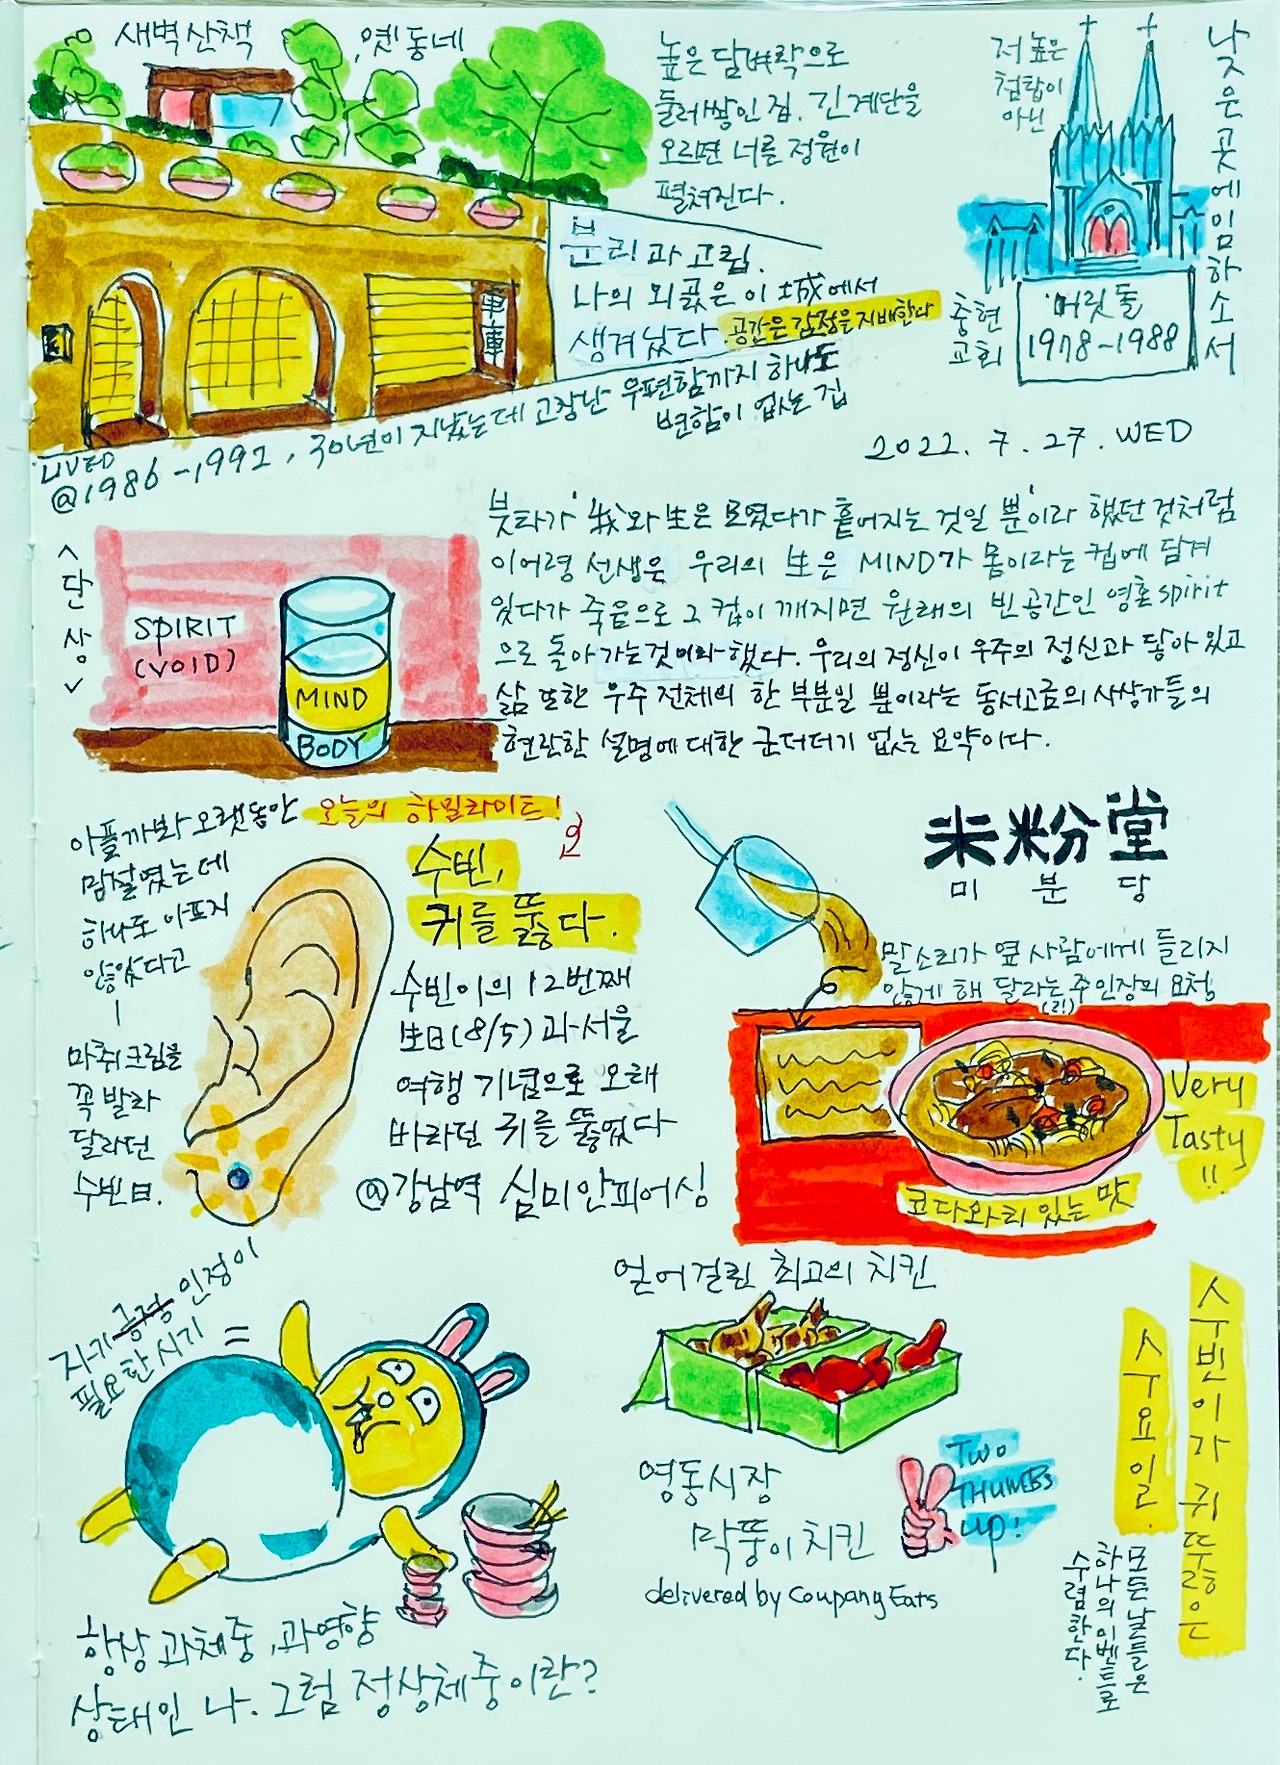 새벽산책, 옛동네
높은 담벼락으로
둘러쌓인 집. 긴 계단을
오르면 너를 정원이
펼쳐진다.
분리과 고립.
나의 외곬은 이 城에서
생겨났다. 공간은 감정을 지배한다
車庫
LIVED
@1986-1992, 30년이 지났는데 고장난 우편함까지 하나도
변함이 없는 집
저 높은
첨탑이
아닌
낮은 곳에 임하소서
충현
교회
머릿돌
1978-1988
2022. 7. 27. WED
<단상>
SPIRIT
(VOID)
MIND
BODY
붓다가 '我와 生은 모였다가 흩어지는 것일 뿐'이라 했던 것처럼
이어령 선생은 우리의 生은 MIND가 몸이라는 컵에 담겨
있다가 죽음으로 그 컵이 깨지면 원래의 빈공간인 영혼 spirit
으로 돌아가는것이라 했다. 우리의 정신이 우주의 정신과 닿아있고
삶 또한 우주 전체의 한 부분일 뿐이라는 동서고금의 사상가들의
현란한 설명에 대한 군더더기 없는 요약이다.
아플까봐 오랫동안
망설였는데
하나도 아프지
않았다고
마취크림을
꼭 발라
달라던
수빈日.
오늘의 하일라이트!
수빈,
귀를 뚫다.
수빈이의 12번째
生日(8/5)과 서울
여행 기념으로 오래
바라던 귀를 뚫었다
@강남역 심미안피어싱
米粉堂
미 분 당
말소리가 옆 사람에게 들리지
않게 해 달라는 주인장의 요청
(2!)
Very
Tasty
!!
코다와리 있는 맛
자기긍정 인정이
필요한 시기 =
항상 과체중, 과영향
상태인 나. 그럼 정상체중이란?
얻어걸린 최고의 치킨
영동시장
막뚱이치킨
delivered by Coupang Eats
TWO
THUMBS
UP!
수빈이가 귀 뚫은
수요일.
모든 날들은
하나의 이벤트로
수렴한다.